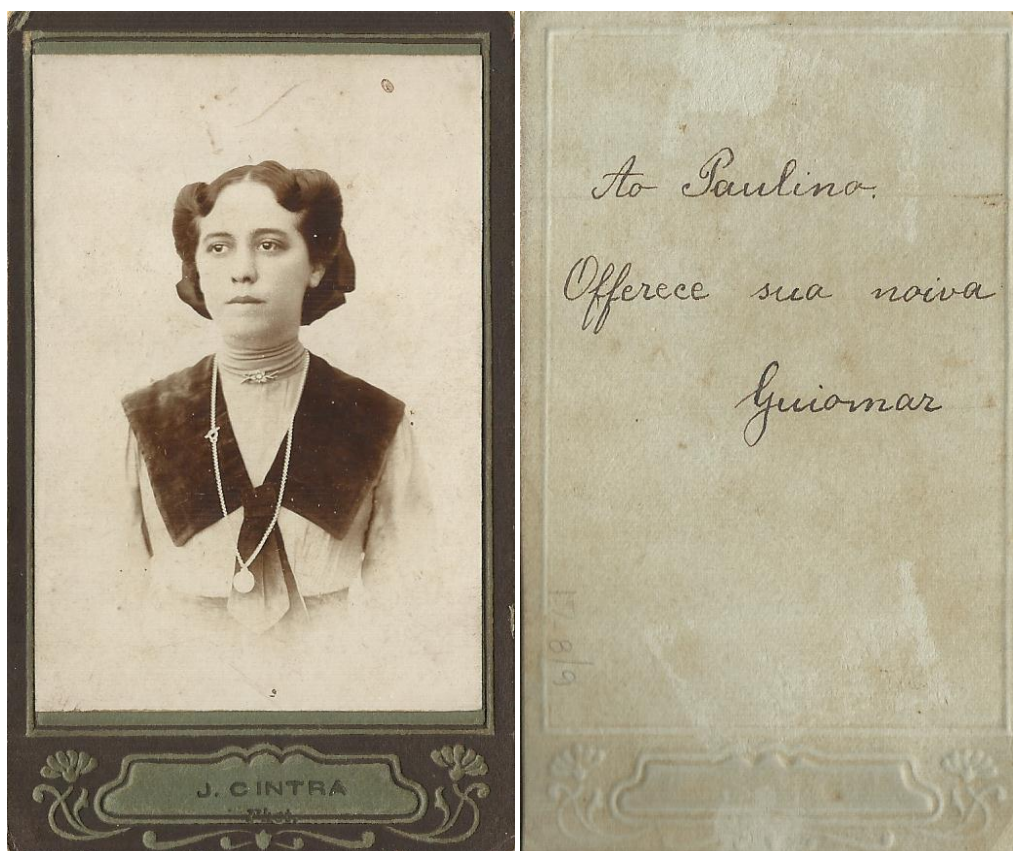 J. CINTRA
Phot.
Ao Paulino.
Offerece sua noiva
Guiomar
17-8/9